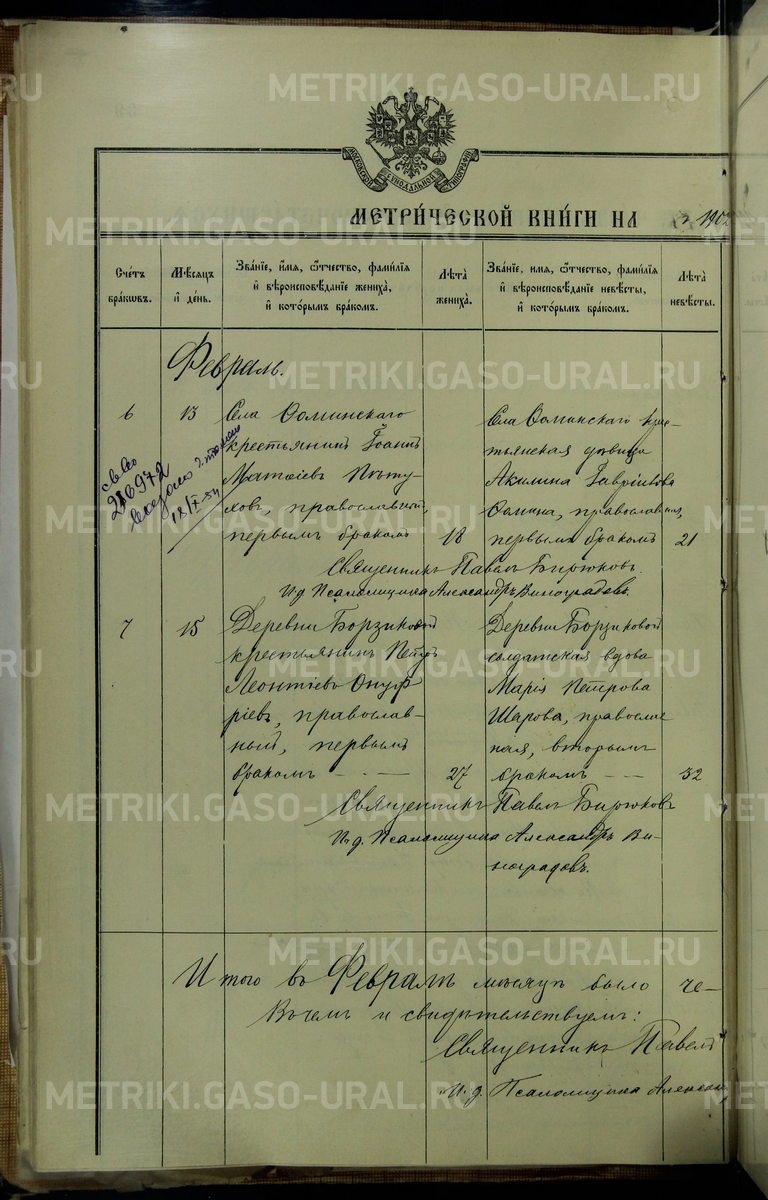 МОСКОВСКОЙ СѴНОДАЛЬНОЙ ТИПОГРАФІИ
МЕТРИ́ЧЕСКОЙ КНИ́ГИ НА 1902
Сче́тъ бра́кωвъ.
Мѣ́сѧцъ и҆ де́нь.
Зва́нїе, и҆́мѧ, ѻ҆́тчество, фамѝлїѧ и҆ вѣроисповѣ́данїе женихà, и҆ кото́рымъ бра́комъ.
Лѣ́та женихà.
Зва́нїе, и҆́мѧ, ѻ҆́тчество, фамѝлїѧ и҆ вѣроисповѣ́данїе невѣ́сты, и҆ кото́рымъ бра́комъ.
Лѣ́та невѣ́сты.
Февраль.
6
13
Села Фоминскаго
крестьянинъ Іоаннъ
Матѳіевъ Пѣту-
ховъ, православный,
первымъ бракомъ
18
Села Фоминскаго кре-
стьянская дѣвица
Акилина Гавріилова
Фомина, православная,
первымъ бракомъ
21
св-во
216972
выдано
18/IX-54
Священникъ Павелъ Бирюковъ.
И.д. Псаломщика Александръ Виноградовъ.
7
15
Деревни Борзиковой
крестьянинъ Петръ
Леонтіевъ Онуф
ріевъ, православ-
ный, первымъ
бракомъ — —
27
Деревни Борзиковой
солдатская вдова
Марія Петрова
Шарова, православ
ная, вторымъ
бракомъ — —
32
Священникъ Павелъ Бирюковъ
И. д. Псаломщика Александръ Ви-
ноградовъ.
Итого въ Февралѣ мѣсяцѣ было че-
Въ чемъ и свидѣтельствуемъ:
Священникъ Павелъ
И. д. Псаломщика Алексан
METRIKI.GASO-URAL.RU